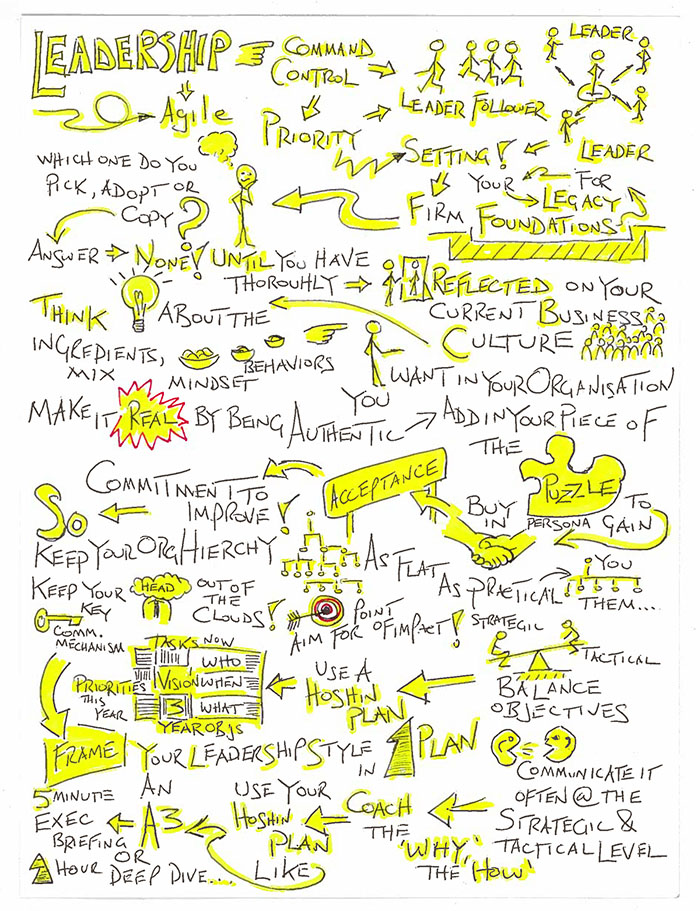 LEADERSHIP
COMMAND
CONTROL
LEADER FOLLOWER
LEADER
LEADER
Agile
PRIORITY
SETTING!
FOR
YOUR
LEGACY
FIRM
FOUNDATIONS
WHICH ONE DO YOU
PICK, ADOPT OR
COPY?
ANSWER NONE! UNTIL YOU HAVE
THOROUHLY
REFLECTED ON YOUR
CURRENT BUSINESS
CULTURE
THINK
ABOUT THE
INGREDIENTS,
MIX
MINDSET
BEHAVIORS
YOU
WANT IN YOUR ORGANISATION
MAKE IT REAL BY BEING AUTHENTIC
ADD IN YOUR PIECE OF
THE
PUZZLE
PERSONA
TO
GAIN
BUY
IN
ACCEPTANCE
COMMITMENT TO
IMPROVE!
SO
KEEP YOUR ORG HIERCHY
AS FLAT
AS PRACTICAL
YOU
THEM....
KEEP YOUR
HEAD
OUT OF
THE
CLOUDS!
AIM FOR
POINT
OF IMPACT!
STRATEGIC
TACTICAL
BALANCE
OBJECTIVES
USE A
HOSHIN
PLAN
TASKS NOW
WHO
VISION WHEN
3 WHAT
YEAR OBJS
PRIORITIES
THIS
YEAR
KEY
COMM.
MECHANISM
FRAME
YOUR LEADERSHIP STYLE
IN
1 PLAN
COMMUNICATE IT
OFTEN @ THE
STRATEGIC &
TACTICAL LEVEL
COACH
THE 'WHY,'
THE 'HOW'
USE YOUR
HOSHIN
PLAN
LIKE
AN
A3
5 MINUTE
EXEC
BRIEFING
OR
1 HOUR
DEEP DIVE...